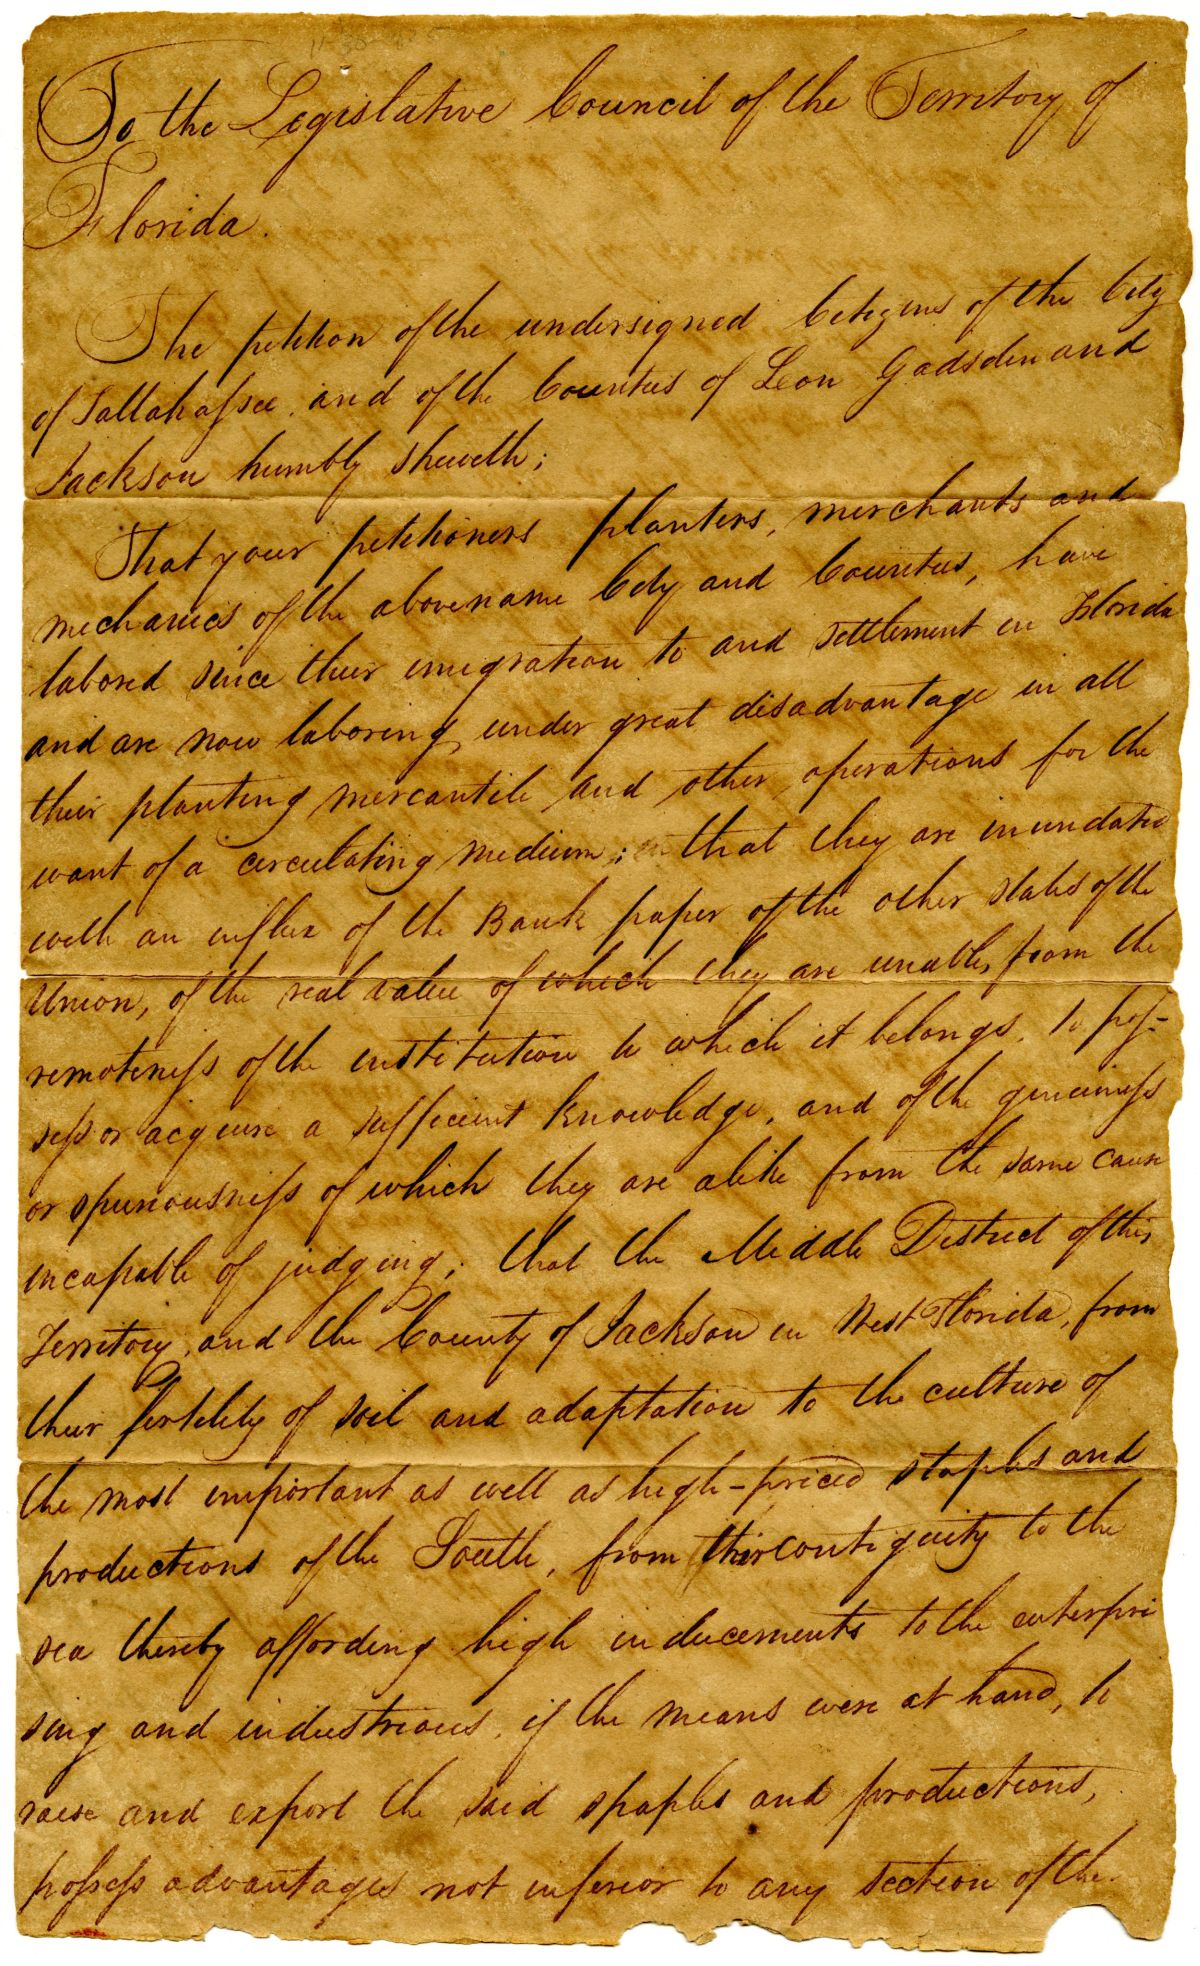 To the Legislative Council of the Territory of
Florida.
The petition of the undersigned Citizens of the City
of Tallahassee, and of the Counties of Leon Gadsden and
Jackson humbly sheweth;
That your petitioners planters, merchants and
mechanics of the abovename City and Counties, have
labored since their emigration to and settlement in Florida
and are now laboring under great disadvantage in all
their planting mercantile and other operations for the
want of a circulating medium; that they are inundated
with an influx of the Bank paper of the other states of the
Union, of the real value of which they are unable, from the
remoteness of the institution to which it belongs, to pos-
sess or acquire a sufficient knowledge, and of the genuiness
or spuriousness of which they are alike from the same cause
incapable of judging; that the Middle District of this
Territory, and the County of Jackson in West Florida, from
their fertility of soil and adaptation to the culture of
the most important as well as high-priced staples and
productions of the South, from their contiguity to the
sea thereby affording high inducements to the enterpri
sing and industrious, if the means were at hand, to
raise and export the said spaples and productions,
possess advantages not inferior to any section of the